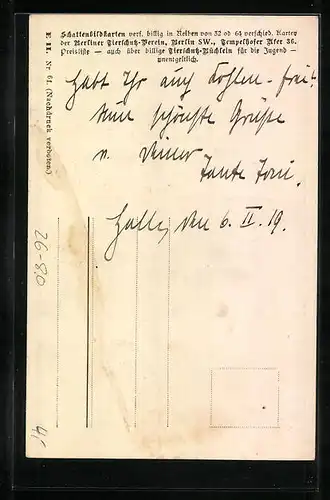 Schattenbildkarten vers. billig in Reihen von 32 od 64 verschied. Karten
der Berliner Tierschutz-Verein, Berlin SW., Tempelhofer Ufer 36.
Preisliste — auch über billige Tierschutz-Büchlein für die Jugend —
unentgeltlich.
E 11. Nr. 61. (Nachdruck verboten.)
habt Ihr auch Kohlen-frei?
Nun schönste Grüße
v. Deiner
Tante Toni.
Halle, den 6. II. 19.
26-80
4,-